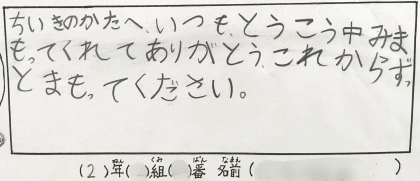 ちいきのかたへ、いつも、とうこう中みま
もってくれてありがとう、これからずっ
とまもってください。
(2)年(　)組(　)番 名前(　)